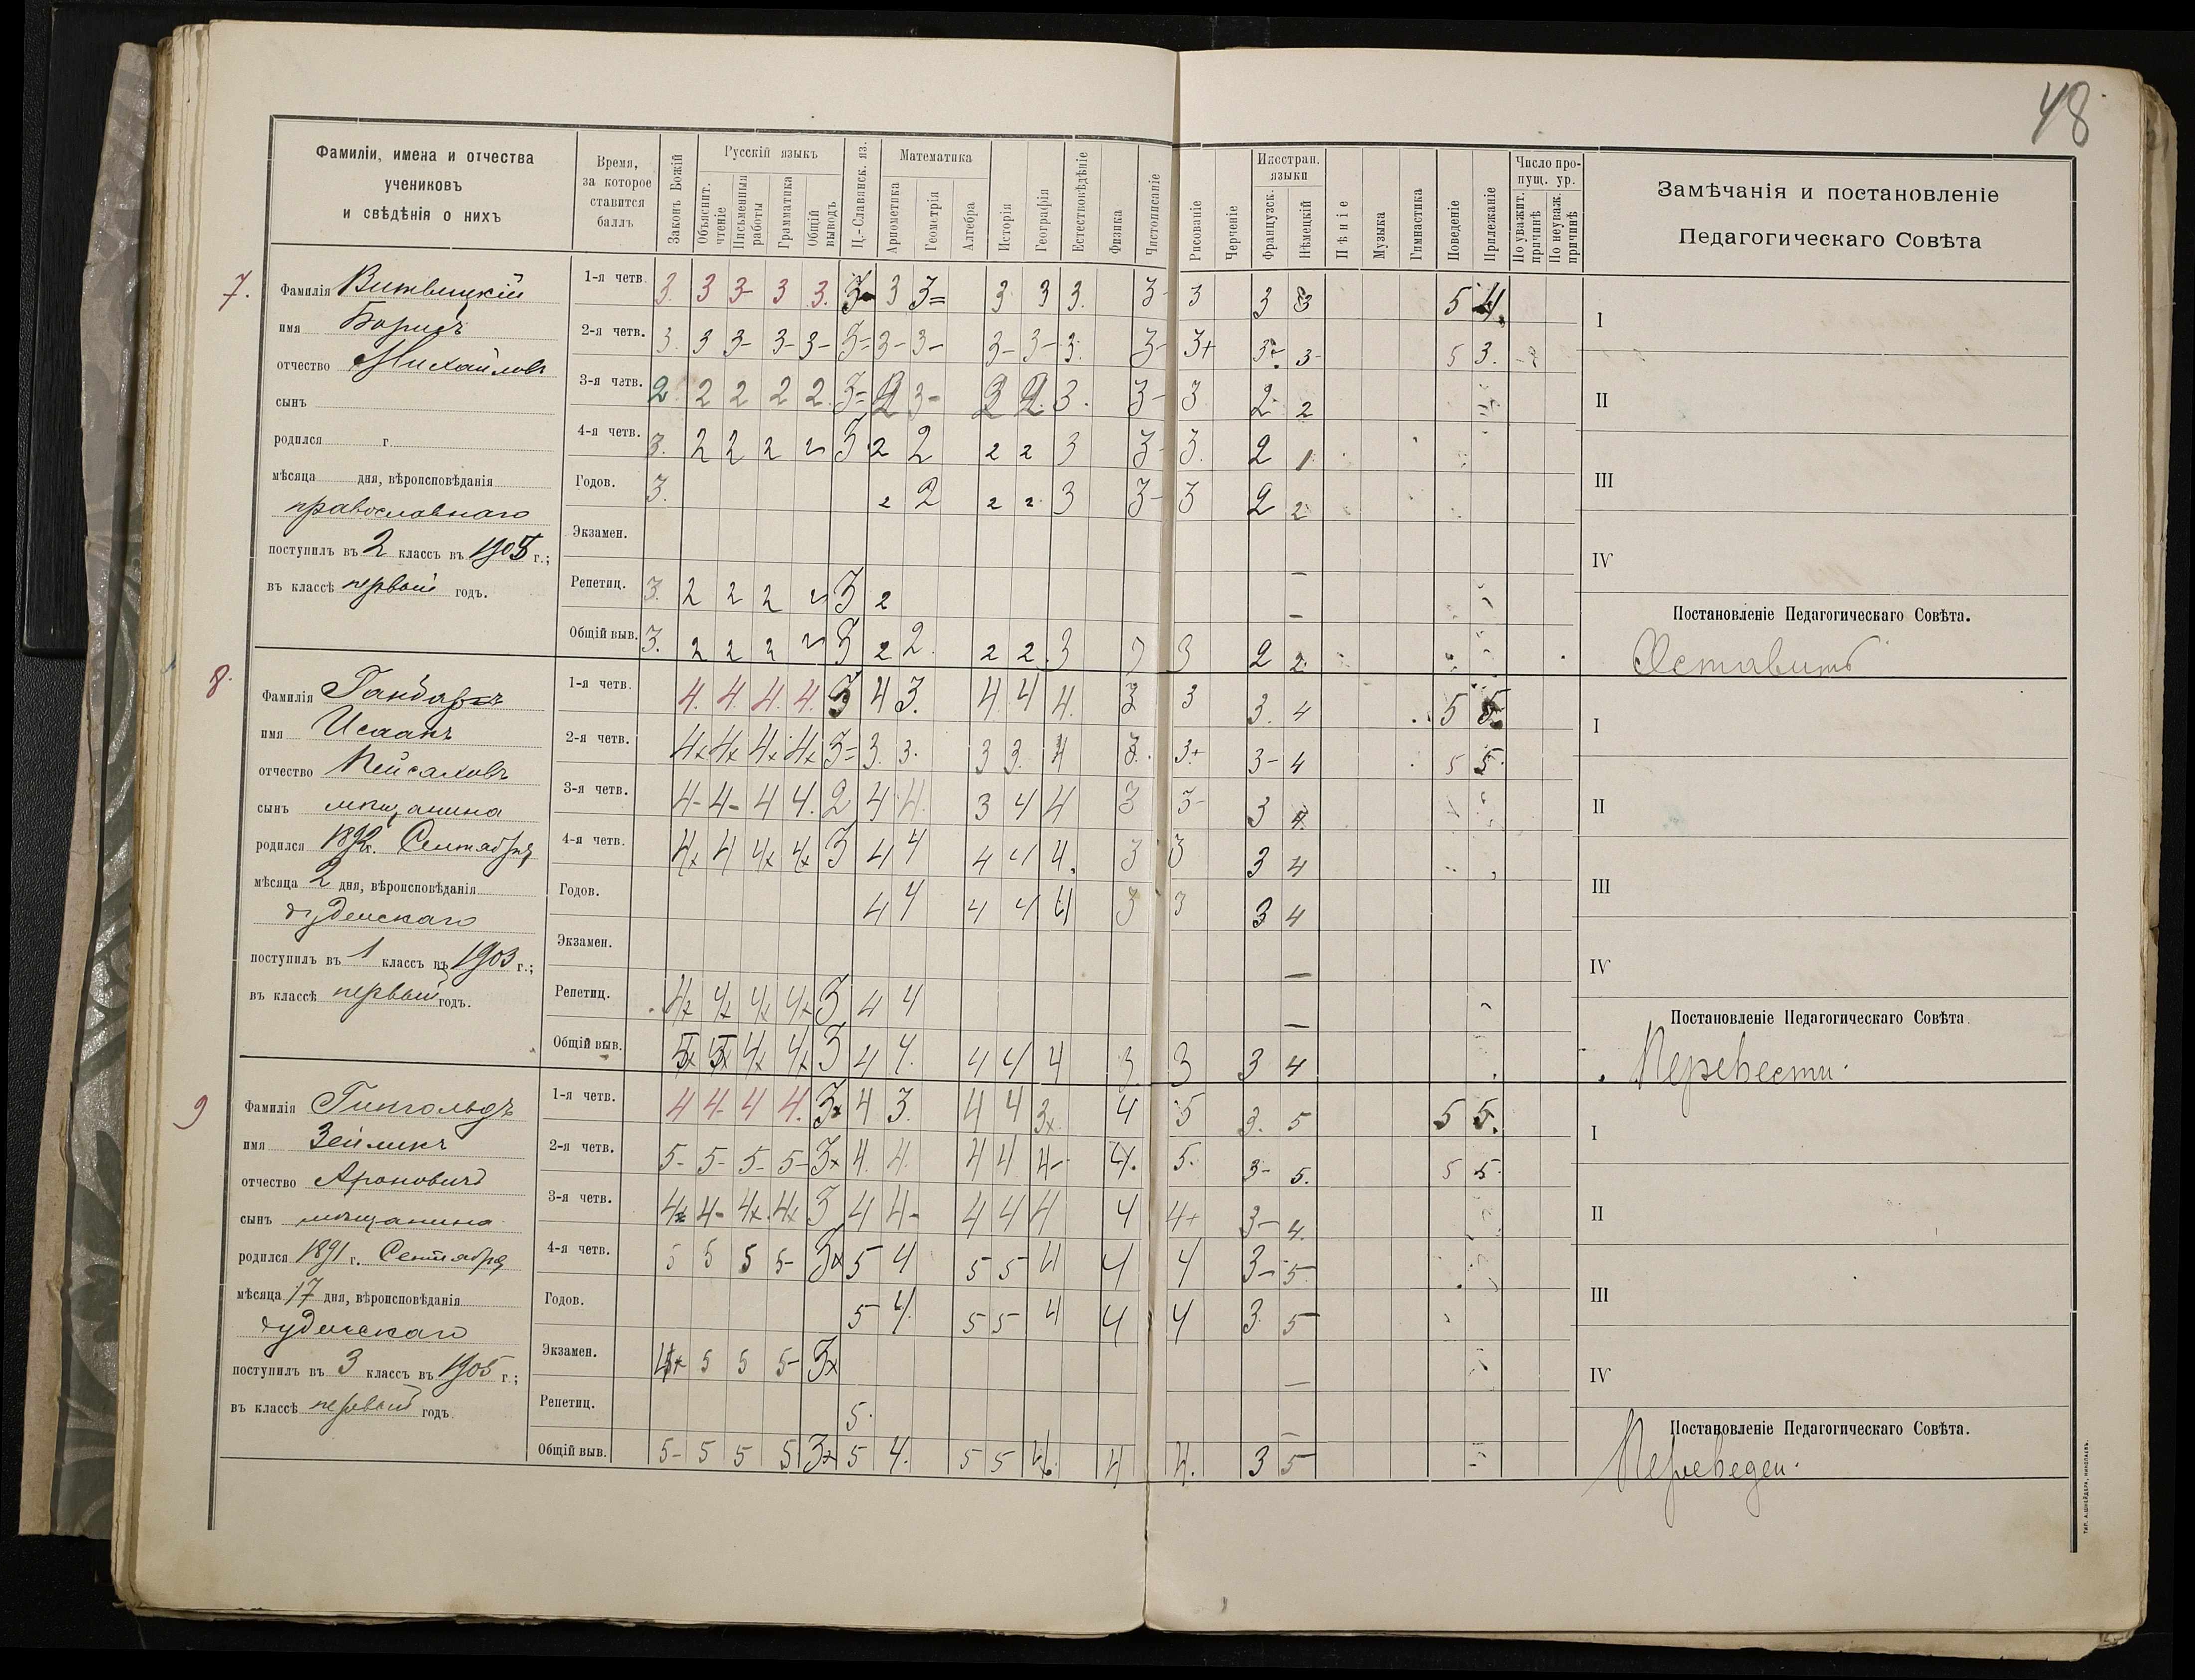 48
Фамиліи, имена и отчества
учениковъ
и свѣдѣнія о нихъ
Время,
за которое
ставится
баллъ
Законъ Божій
Русскій языкъ
Объяснит.
чтеніе
Письменныя
работы
Грамматика
Общій
выводъ
Ц.-Славянск. яз.
Математика
Ариѳметика
Геометрія
Алгебра
Исторія
Географія
Естествовѣдѣніе
Физика
Чистописаніе
Рисованіе
Черченіе
Иностран.
языки
Французск.
Нѣмецкій
Пѣніе
Музыка
Гимнастика
Поведеніе
Прилежаніе
Число про-
пущ. ур.
По уважит.
причинѣ
По неуваж.
причинѣ
Замѣчанія и постановленіе
Педагогическаго Совѣта
7.
Фамилія Витвицкій
имя Борисъ
отчество Михайловъ
сынъ
родился г.
мѣсяца дня, вѣроисповѣданія
православнаго
поступилъ въ 2 классъ въ 1905 г.;
въ классѣ первый годъ.
1-я четв. 3. 3 3- 3 3. 3- 3 3= 3 3 3. 3- 3 3 3 5 4.
2-я четв. 3. 3 3- 3- 3- 3= 3- 3- 3- 3- 3. 3- 3+ 3- 3- 5 3.
3-я четв. 2 2 2 2 2. 3= 2 3- 2 2 3. 3- 3 2 2
4-я четв. 3. 2 2 2 2 3 2 2 2 2 3 3- 3. 2 1
Годов. 3. 2 2 2 2 3 3- 3 2 2
Экзамен.
Репетиц. 3. 2 2 2 2 3 2 —
Общій выв. 3. 2 2 2 2 3 2 2 2 2 3 3 3 2 2
I
II
III
IV
Постановленіе Педагогическаго Совѣта.
Оставить
8.
Фамилія
имя Исаакъ
отчество Пейсаховъ
сынъ мѣщанина
родился 1892 г. Сентября
мѣсяца 2 дня, вѣроисповѣданія
іудейскаго
поступилъ въ 1 классъ въ 1903 г.;
въ классѣ первый годъ.
1-я четв. 4. 4. 4. 4. 3 4 3. 4 4 4. 3 3 3. 4 5 5
2-я четв. 4+ 4+ 4+ 4+ 3= 3. 3. 3 3. 4 3. 3+ 3- 4 5 5.
3-я четв. 4- 4- 4 4. 2 4 4. 3 4 4 3 3- 3 4
4-я четв. 4+ 4 4+ 4+ 3 4 4 4 4 4. 3 3 3 4
Годов. 4 4 4 4 4 3 3 3 4
Экзамен.
Репетиц. 4+ 4+ 4+ 4+ 3 4 4 —
Общій выв. 4+ 4+ 3 4 4. 4 4 4 3 3 3 4
I
II
III
IV
Постановленіе Педагогическаго Совѣта.
Перевести.
9
Фамилія Гингольдъ
имя Зейликъ
отчество Ароновичъ
сынъ мѣщанина
родился 1891 г. Сентября
мѣсяца 17 дня, вѣроисповѣданія
іудейскаго
поступилъ въ 3 классъ въ 1905 г.;
въ классѣ первый годъ
1-я четв. 4 4- 4 4. 3+ 4 3. 4 4 3+ 4 5 3. 5 5 5.
2-я четв. 5- 5- 5- 5- 3+ 4. 4. 4 4 4- 4. 5. 3- 5. 5 5.
3-я четв. 4+ 4- 4+ 4+ 3 4 4- 4 4 4 4 4+ 3- 4.
4-я четв. 5 5 5 5- 3+ 5 4 5 5 4 4 4 3- 5.
Годов. 5 4. 5 5 4 4 4 3 5
Экзамен. 4+ 5 5 5- 3+ —
Репетиц. 5.
Общій выв. 5- 5 5 5 3+ 5 4. 5 5 4. 4 4. 3 5
I
II
III
IV
Постановленіе Педагогическаго Совѣта.
Переведен.
ТИП. А. ШНЕЙДЕРА, НИКОЛАЕВЪ.